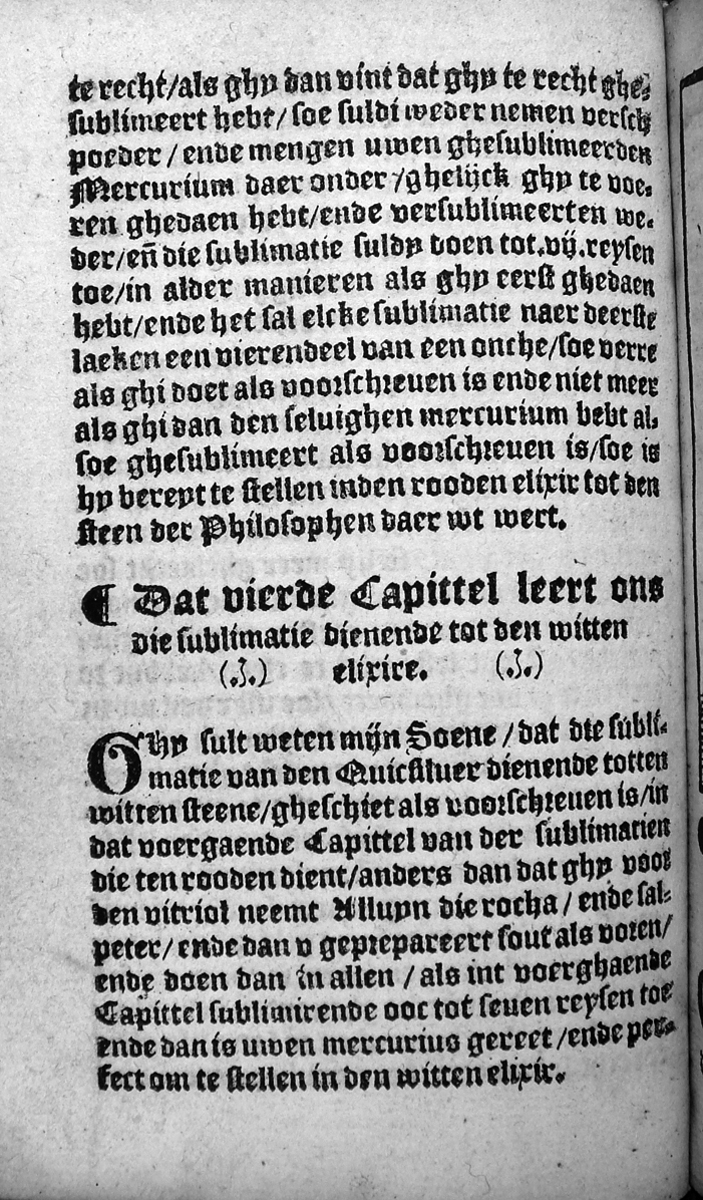 te recht/als ghy dan vint dat ghy te recht ghe-
sublimeert hebt/ soe suldi weder nemen versch
poeder / ende mengen uwen ghesublimeerden
Mercurium daer onder /ghelijck ghy te voe-
ren ghedaen hebt/ende versublimeerten we-
der/eñ die sublimatie suldy doen tot.vij.reysen
toe/in alder manieren als ghy eerst ghedaen
hebt/ende het sal elcke sublimatie naer deerste
laeken een vierendeel van een onche/soe verre
als ghi doet als voorschreuen is ende niet meer
als ghi dan den seluighen mercurium hebt al-
soe ghesublimeert als voorschreuen is/soe is
hy bereyt te stellen inden rooden elixir tot den
steen der Philosophen daer wt wert.
¶ Dat vierde Capittel leert ons
die sublimatie dienende tot den witten
(.J.) elixire. (.J.)
Ghy sult weten mijn Soene / dat die subli-
matie van den Quicsiluer dienende totten
witten steene/gheschiet als voorschreuen is/in
dat voergaende Capittel van der sublimatien
die ten rooden dient/anders dan dat ghy voor
den vitriol neemt Alluyn die rocha / ende sal-
peter/ ende dan v geprepareert sout als voren/
ende doen dan in allen / als int voerghaende
Capittel sublimirende ooc tot seuen reysen toe
ende dan is uwen mercurius gereet /ende per-
fect om te stellen in den witten elixir.